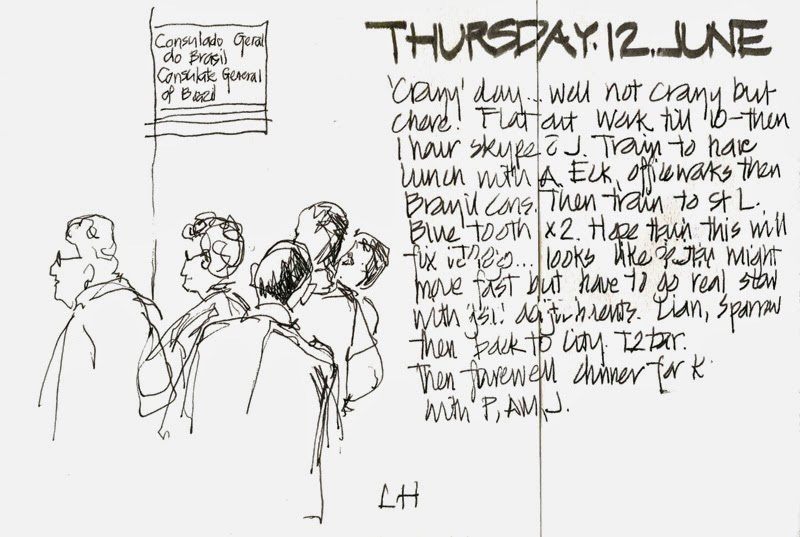 Consulado Geral
do Brasil
Consulate General
of Brazil
THURSDAY. 12. JUNE
'Crazy' day... well not crazy but
Flat out work till 10 - then
1 hour skype J. Train to have
lunch with A. Eck, officeworks then
Brazil Cons. Then train to St L.
Blue tooth x2. Hope this will
fix looks like might
move fast but have to go real slow
with Lian, Sparrow
then back to City. T2 bar.
Then farewell dinner for K
with P, AM, J.
LH